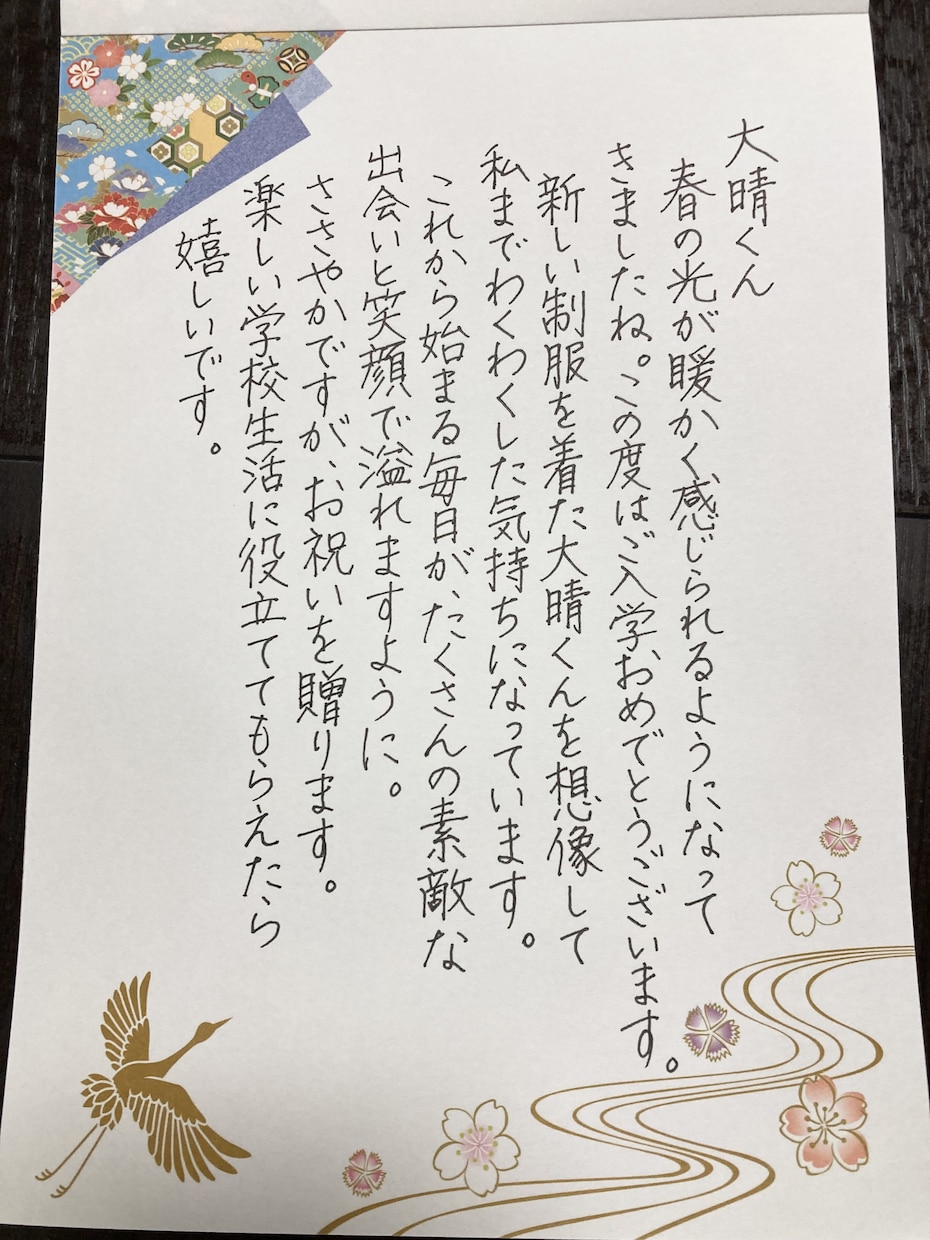 大晴くん
春の光が暖かく感じられるようになって
きましたね。この度はご入学おめでとうございます。
新しい制服を着た大晴くんを想像して
私までわくわくした気持ちになっています。
これから始まる毎日が、たくさんの素敵な
出会いと笑顔で溢れますように。
ささやかですが、お祝いを贈ります。
楽しい学校生活に役立ててもらえたら
嬉しいです。